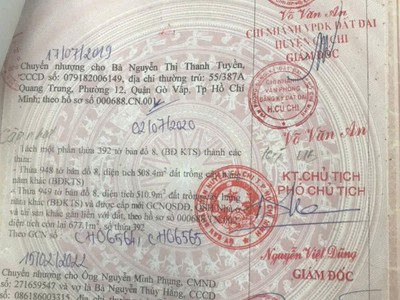 17/07/2019
Chuyển nhượng cho Bà Nguyễn Thị Thanh Tuyền,
CCCD số: 079182006149, địa chỉ thường trú: 55/387A
Quang Trung, Phường 12, Quận Gò Vấp, Tp Hồ Chí
Minh; theo hồ sơ số 000688.CN.001
Võ Văn An
CHI NHÁNH VPĐK ĐẤT ĐAI
HUYỆN CỦ CHI
GIÁM ĐỐC
CHI NHÁNH
VĂN PHÒNG
ĐĂNG KÝ ĐẤT ĐAI
H.CỦ CHI
Võ Văn An
02/07/2020
Tách một phần thửa 392 tờ bản đồ 8, (BĐ KTS) thành các
thửa:
Thửa 948 tờ bản đồ 8, diện tích 508.4m² đất trồng cây
năm khác (BĐKTS)
Thửa 949 tờ bản đồ 8, diện tích 510.9m² đất trồng cây hàng
năm khác (BĐKTS) và được cấp mới GCNQSDĐ,
và tài sản khác gắn liền với đất, theo hồ sơ số 000688
diện tích còn lại 677.1m², số thửa 392
Theo GCN số: CH06564, CH06565
KT.CHỦ TỊCH
PHÓ CHỦ TỊCH
Nguyễn Việt Dũng
GIÁM ĐỐC
15/02/2022
Chuyển nhượng cho Ông Nguyễn Minh Phụng, CMND
số: 271659547 và vợ là Bà Nguyễn Thúy Hằng, CCCD
số: 086186003315